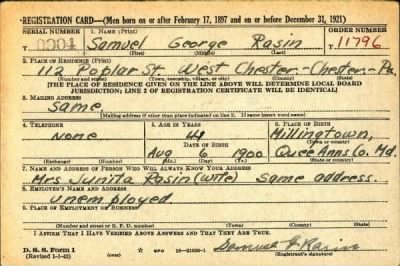 REGISTRATION CARD—(Men born on or after February 17, 1897 and on or before December 31, 1921)
SERIAL NUMBER 1. NAME (Print) ORDER NUMBER
Samuel George Rasin 11796
(First) (Middle) (Last)
2. PLACE OF RESIDENCE (Print)
112 Poplar St West Chester-Chester-Pa.
(Number and street) (Town, township, village, or city) (County) (State)
[THE PLACE OF RESIDENCE GIVEN ON THE LINE ABOVE WILL DETERMINE LOCAL BOARD
JURISDICTION; LINE 2 OF REGISTRATION CERTIFICATE WILL BE IDENTICAL]
3. MAILING ADDRESS
Same
[Mailing address if other than place indicated on line 2. If same insert word same]
4. TELEPHONE 5. AGE IN YEARS 6. PLACE OF BIRTH
None 41 Millingtown,
DATE OF BIRTH (Town or county)
Aug 6 1900 Quee Anns Co. Md.
(Exchange) (Number) (Mo.) (Day) (Yr.) (State or country)
7. NAME AND ADDRESS OF PERSON WHO WILL ALWAYS KNOW YOUR ADDRESS
Mrs Junita Rasin (wife) Same address.
8. EMPLOYER'S NAME AND ADDRESS
unemployed.
9. PLACE OF EMPLOYMENT OR BUSINESS
(Number and street or R. F. D. number) (Town) (County) (State)
I AFFIRM THAT I HAVE VERIFIED ABOVE ANSWERS AND THAT THEY ARE TRUE.
D. S. S. Form 1
(Revised 1-1-42) GPO 16—21630-1
(Registrant's signature)